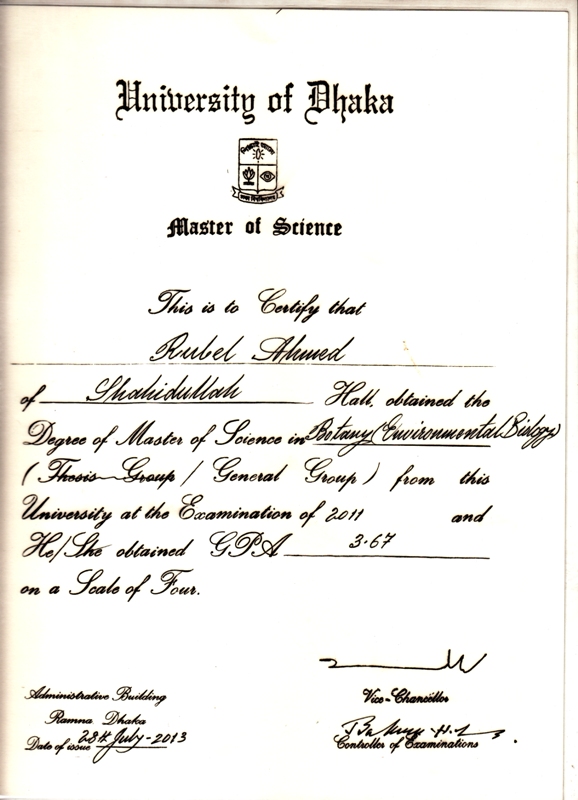 University of Dhaka
শিক্ষাই আলো
ঢাকা বিশ্ববিদ্যালয়
Master of Science
This is to Certify that
Rubel Ahmed
of Shahidullah Hall, obtained the
Degree of Master of Science in Botany (Environmental Biology)
(Thesis Group / General Group) from this
University at the Examination of 2011 and
He/She obtained GPA 3.67
on a Scale of Four.
Administrative Building
Ramna Dhaka
Date of issue 28th July-2013
Vice-Chancellor
Controller of Examinations